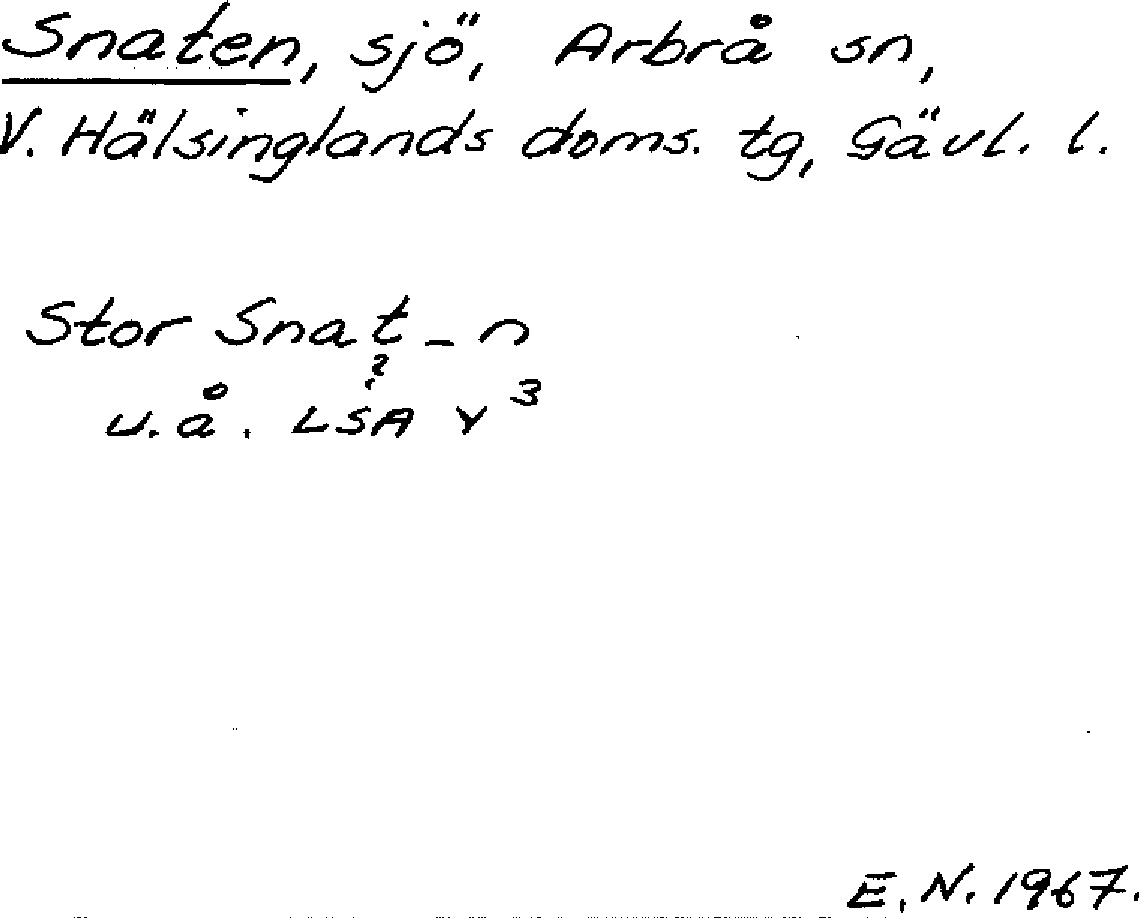 Snaten, sjö, Arbrå sn,
V. Hälsinglands doms. tg, Gävl. l.
Stor Snat_n
?
u.å. LSA Y³
E.N. 1967.